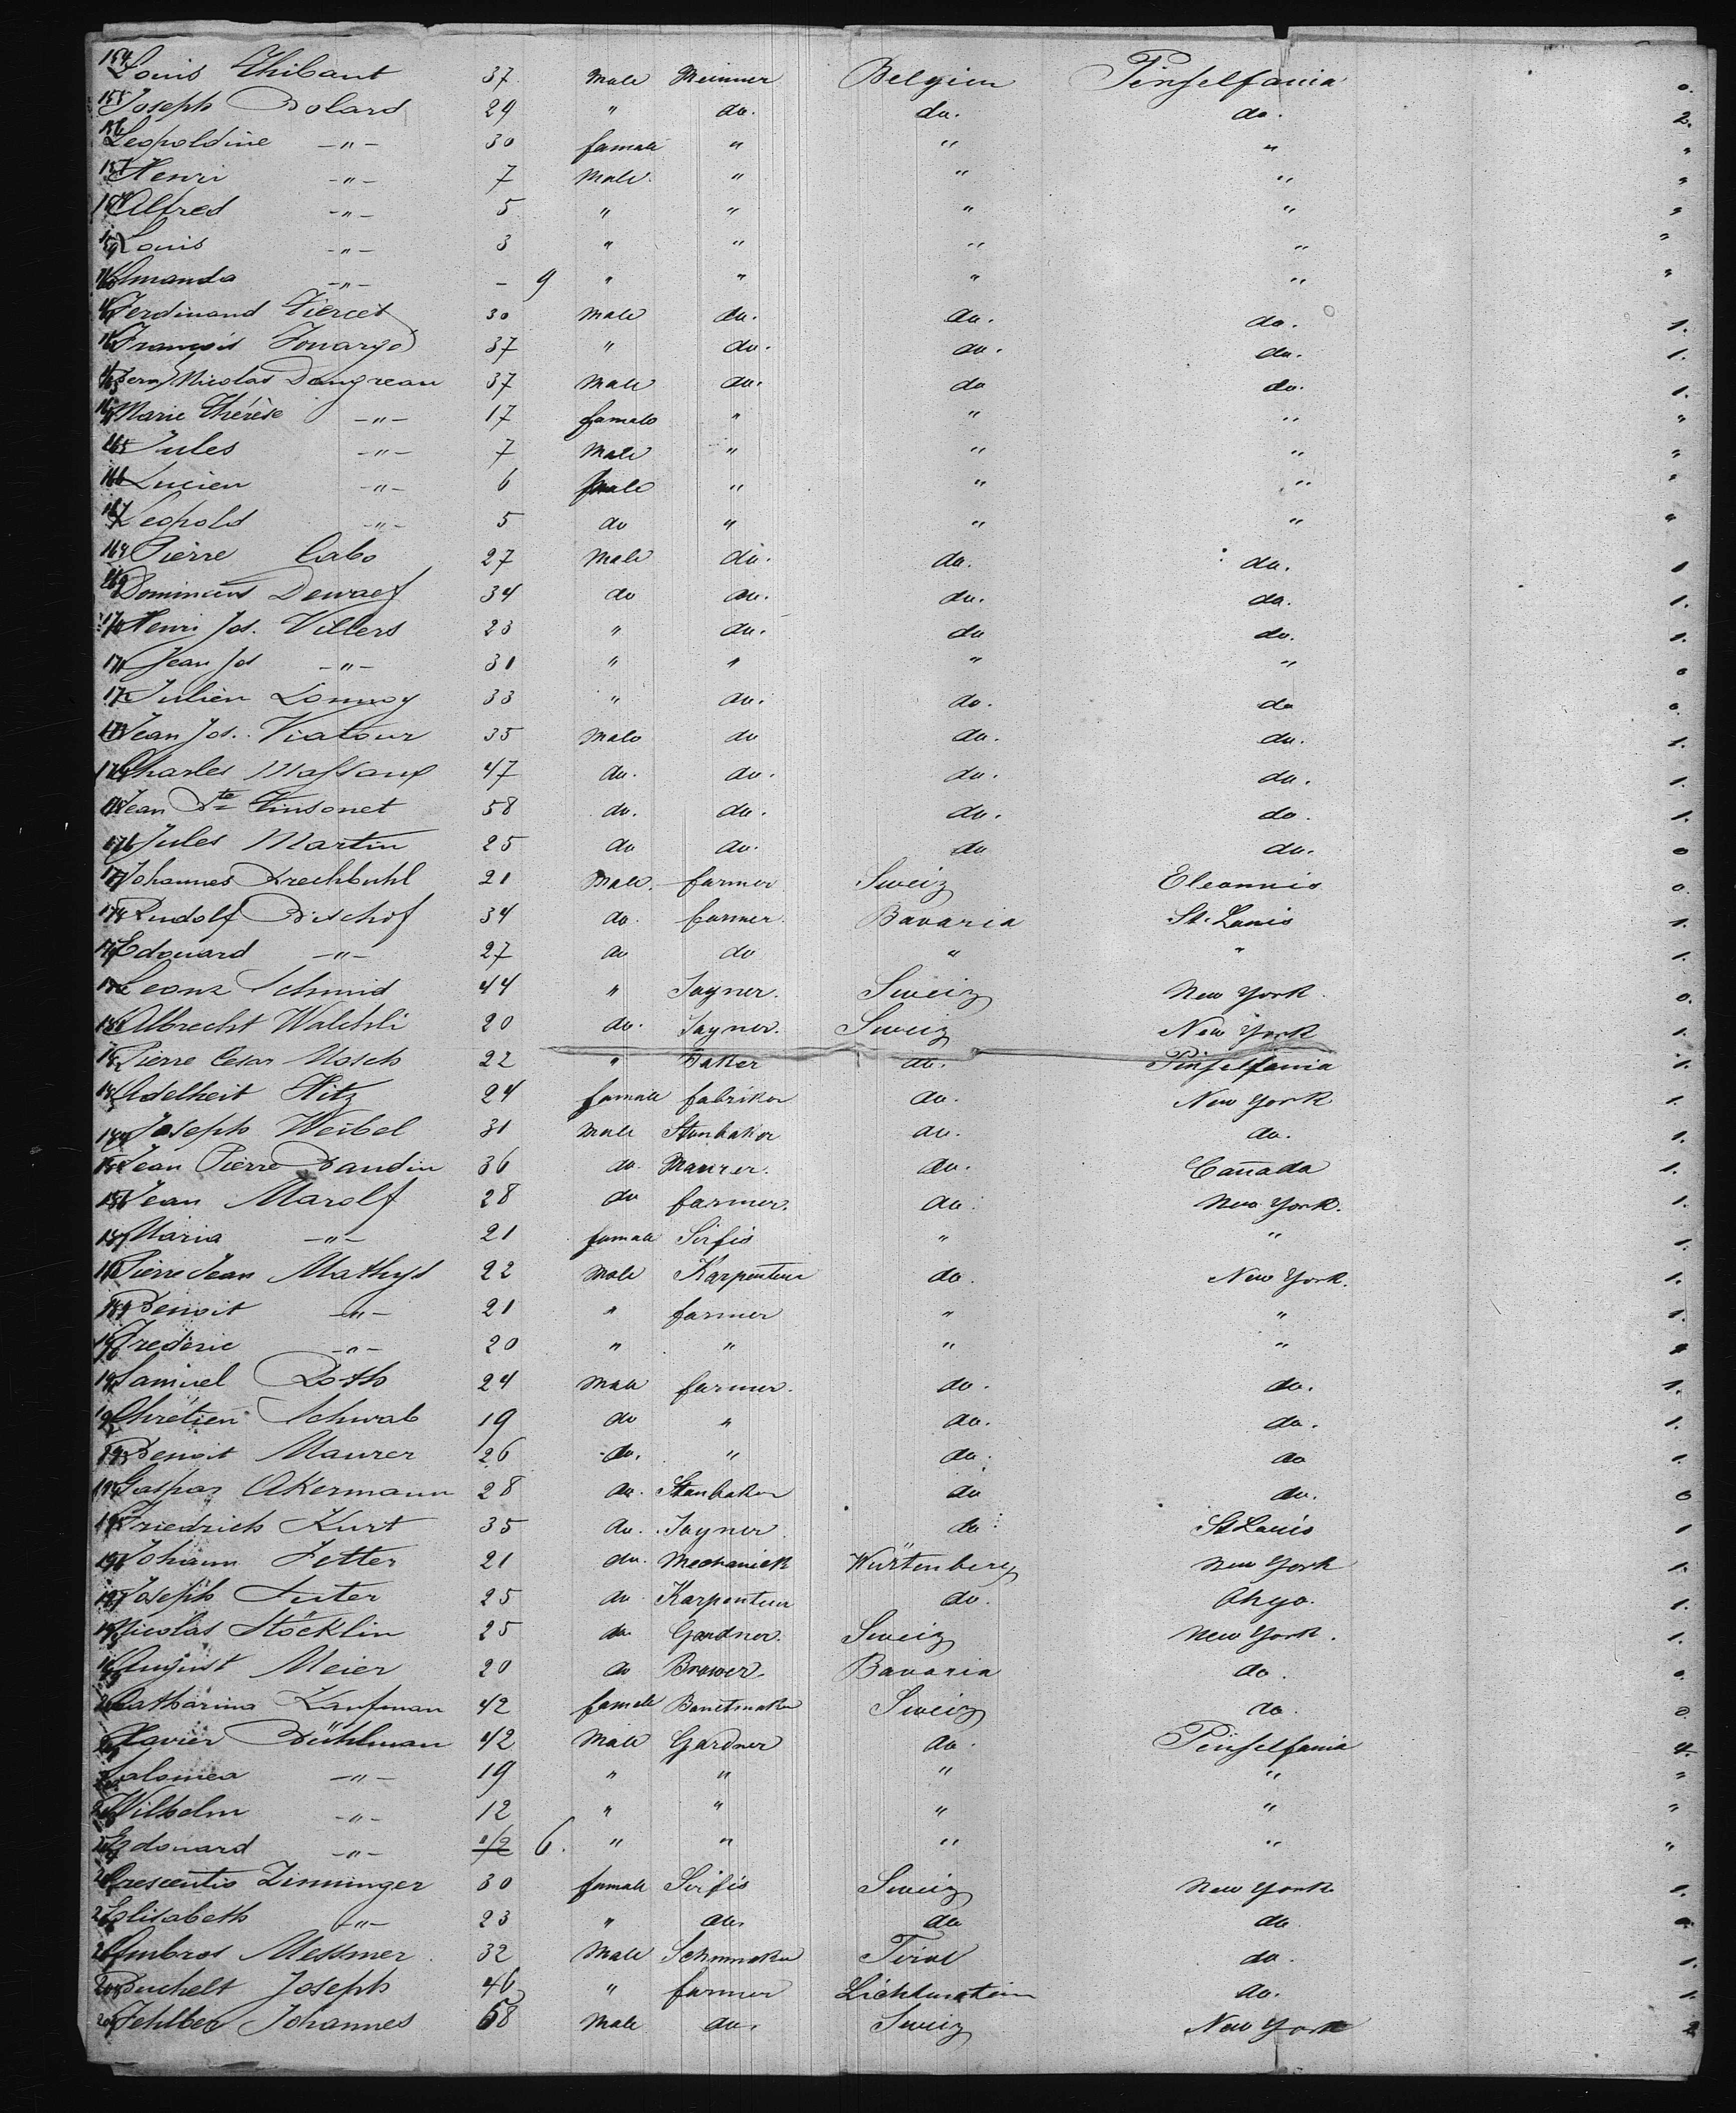 154 Louis Thibaut 37 Male Meinner Belgien Pinselfania 0.
155 Joseph Bolard 29 " do. do. do. 2.
156 Leopoldine -"- 30 famale " " " "
157 Henri -"- 7 Male " " " "
158 Alfred -"- 5 " " " " "
159 Louis -"- 3 " " " " "
160 Amanda -"- - 9 " " " " "
161 Ferdinand Fiercet 30 Male do. do. do. 1.
162 François Fouarge 37 " do. do. do. 1.
163 Nicolas Dangreau 37 Male do. do do. 1.
164 Marie Thérèse -"- 17 famale " " " "
165 Jules -"- 7 Male " " " "
166 Lucien -"- 6 male " " " "
167 Leopold -"- 5 do " " " "
168 Pierre Cabo 27 Male do. do. do. 1
169 Dewaef 34 do do. do. do. 1.
170 Henri Jos. Villers 23 " do. do do. 1.
171 Jean Jos -"- 31 " " " " 0
172 Julien Lonnoy 33 " do. do. do 0.
173 Jean Jos. Viatour 35 Male do do. do. 1.
174 Charles Massaux 47 do. do. do. do. 1.
175 Jean Bte Tinsonet 58 do. do. do. do. 1.
176 Jules Martin 25 do do. do do. 0
177 Johannes Krechbuhl 21 Male. farmer Sweiz 0.
178 Rudolf Bischof 34 do. farmer. Bavaria St. Louis 1.
179 Edouard -"- 27 do do " " 1.
180 Leonz Schmid 44 " Joyner. Sweiz New York. 0.
181 Albrecht Walchli 20 do. Joyner. Sweiz New York 1.
182 Pierre Cesar Mosch 22 " Baker do. Pinselfania 1.
183 Adelheit Hitz 24 famale fabriker do. New York 1.
184 Joseph Weibel 31 Male Stonhaker do. do. 1.
185 Jean Pierre Baudin 36 do. Maurer. do. Cañada 1.
186 Jean Marolf 28 do farmer. do. New York. 1.
187 Maria -"- 21 famale Sirfis " " 1.
188 Pierre Jean Mathys 22 Male Karpenteur do. New York. 1.
189 Benoit -"- 21 " farmer " " 1.
190 Frederic -"- 20 " " " "
191 Samuel Roth 24 Male farmer. do. do. 1.
192 Chretien Schwab 19 do " do. do. 1.
193 Benoit Maurer 26 do. " do. do 1.
194 Gaspar Akermann 28 do. Stonhaker do do. 0
195 Friedrich Kurt 35 do. Joyner do. St Louis 1
196 Johann Fetter 21 do. Mechanick Würtenberg New York 1.
197 Joseph Suter 25 do Karpenteur do. Ohyo. 1.
198 Nicolas Stöcklin 25 do Gardner. Sweiz New York. 1.
199 August Meier 20 do Brower. Bavaria do. 0.
200 Catharina Kaufman 42 famale Bonetmaker Sweiz do. 0.
201 Xavier Bühlman 42 Male Gardner do. Pinselfania 4.
202 Salomea -"- 19 " " " " "
203 Wilhelm -"- 12 " " " " "
204 Edouard -"- 1/2 6. " " " " "
205 Crescentio Zinninger 30 famale Sirfis Sweiz New York 1.
206 Elisabeth -"- 23 " do. do do
207 Ambros Messmer 32 Male Schomaker Tirol do. 1.
208 Buchelt Joseph 46 " farmer Lichtenstein do. 1.
209 Johannes 68 Male do. Sweiz New York 2